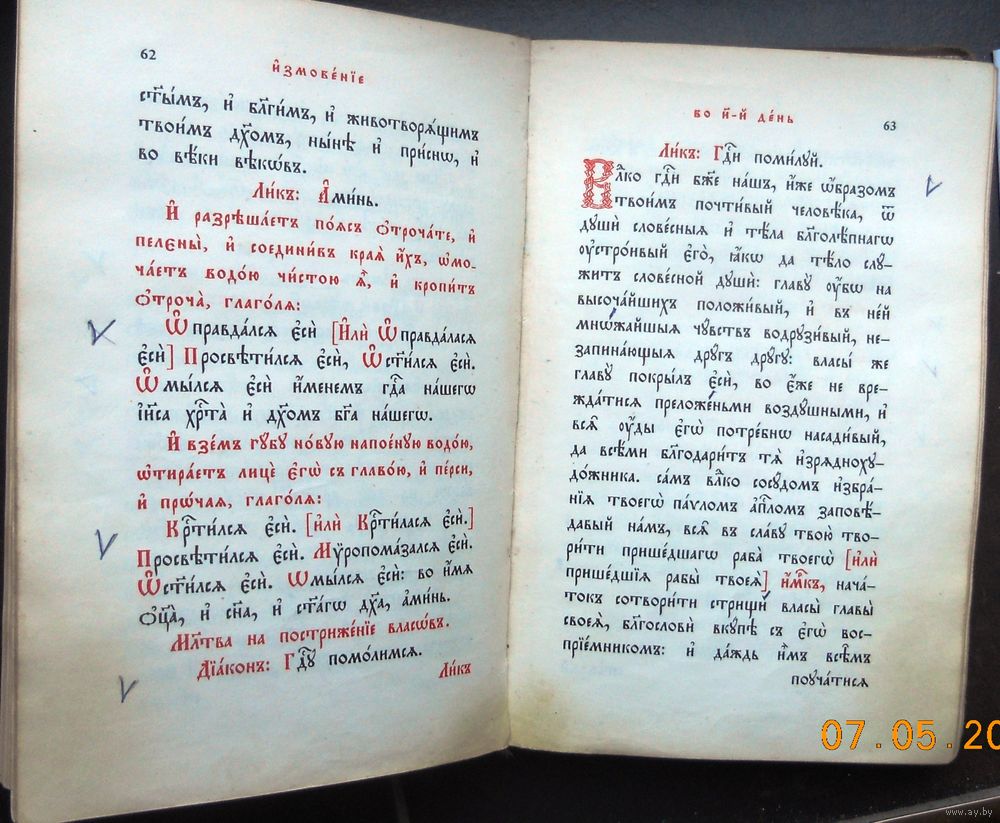 62
И҆змове́нїе
ст҃ы́мъ, и҆ бл҃ги́мъ, и҆ животворѧ́щимъ
твои́мъ дх҃омъ, ны́нѣ и҆ при́снѡ, и҆
во вѣ́ки вѣкѡ́въ.
Ли́къ: А҆ми́нь.
И҆ разрѣша́етъ по́ѧсъ ѻ҆троча́те, и҆
пелены̀, и҆ соедини́въ краѧ̑ и҆́хъ, ѡ҆мо-
ча́етъ водо́ю чи́стою ѧ҆̀, и҆ кропи́тъ
ѻ҆троча̀, глаго́лѧ:
Ѡ҆правда́лсѧ є҆сѝ [И҆лѝ Ѡ҆правда́ласѧ
є҆сѝ] Просвѣти́лсѧ є҆сѝ, Ѡ҆ст҃и́лсѧ є҆сѝ.
Ѡ҆мы́лсѧ є҆сѝ и҆́менемъ гдⷭ҇а на́шегѡ
і҆и҃са хрⷭ҇та̀ и҆ дх҃омъ бг҃а на́шегѡ.
И҆ взе́мъ гу́бу но́вую напое́ную водо́ю,
ѡ҆тира́етъ лицѐ є҆гѡ̀ съ главо́ю, и҆ пе́рси,
и҆ прѡ́чаѧ, глаго́лѧ:
Крⷭ҇ти́лсѧ є҆сѝ. [и҆лѝ Крⷭ҇ти́ласѧ є҆сѝ.]
Просвѣти́лсѧ є҆сѝ. Мѷропома́залсѧ є҆сѝ.
Ѡ҆ст҃и́лсѧ є҆сѝ. Ѡ҆мы́лсѧ є҆сѝ: во и҆́мѧ
ѻ҆ц҃а̀, и҆ сн҃а, и҆ ст҃а́гѡ дх҃а, а҆ми́нь.
Мл҃тва на постриже́нїе власѡ́въ.
Дїа́конъ: Гдⷭ҇у помо́лимсѧ.
Ли́къ
во и҃-й де́нь
63
Ли́къ: Гдⷭ҇и поми́луй.
Влⷣко гдⷭ҇и бж҃е на́шъ, и҆́же ѡ҆́бразомъ
твои́мъ почти́вый человѣ́ка, ѿ
душѝ слове́сныѧ и҆ тѣ́ла бл҃голѣ́пнагѡ
ᲂу҆стро́ивый є҆го̀, ꙗ҆́кѡ да тѣ́ло слꙋ́-
житъ слове́сной душѝ: главу̀ ᲂу҆́бѡ на
высоча́йшихъ положи́вый, и҆ въ не́й
мнѡ́жайшыѧ чу́вствъ водрузи́вый, не-
запина́ющыѧ дру́гъ дру́гу: власы́ же
главу̀ покры́лъ є҆сѝ, во є҆́же не вре-
жда́тисѧ преложе́ньми возду́шными, и҆
всѧ̑ ᲂу҆́ды є҆гѡ̀ потре́бнѡ насади́вый,
да всѣ́ми бл҃годари́тъ тѧ̀ и҆зрѧдноху-
до́жника. са́мъ влⷣко сосу́домъ и҆збра́-
нїѧ твоегѡ̀ па́ѵломъ а҆пⷭ҇ломъ заповѣ́-
давый на́мъ, всѧ̑ въ сла́ву твою̀ тво-
ри́ти прише́дшагѡ раба̀ твоегѡ̀ [и҆лѝ
прише́дшїѧ рабы̀ твоеѧ̀] и҆́мⷬ҇къ, нача́-
токъ сотвори́ти стрищѝ власы̀ главы̀
своеѧ̀, бл҃гословѝ вку́пѣ съ є҆гѡ̀ вос-
прїе́мникомъ: и҆ да́ждь и҆̀мъ всѣ̑мъ
поуча́тисѧ
07.05.20
www.ay.by